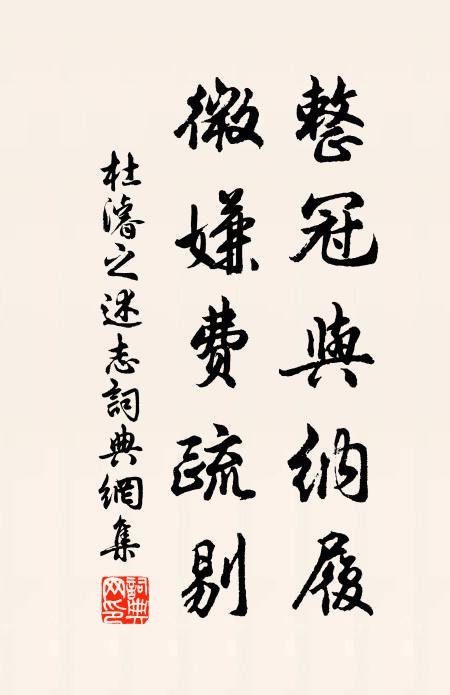 整冠與納履
微嫌費疏剔
杜濬之述志詞典網集
詞典網印